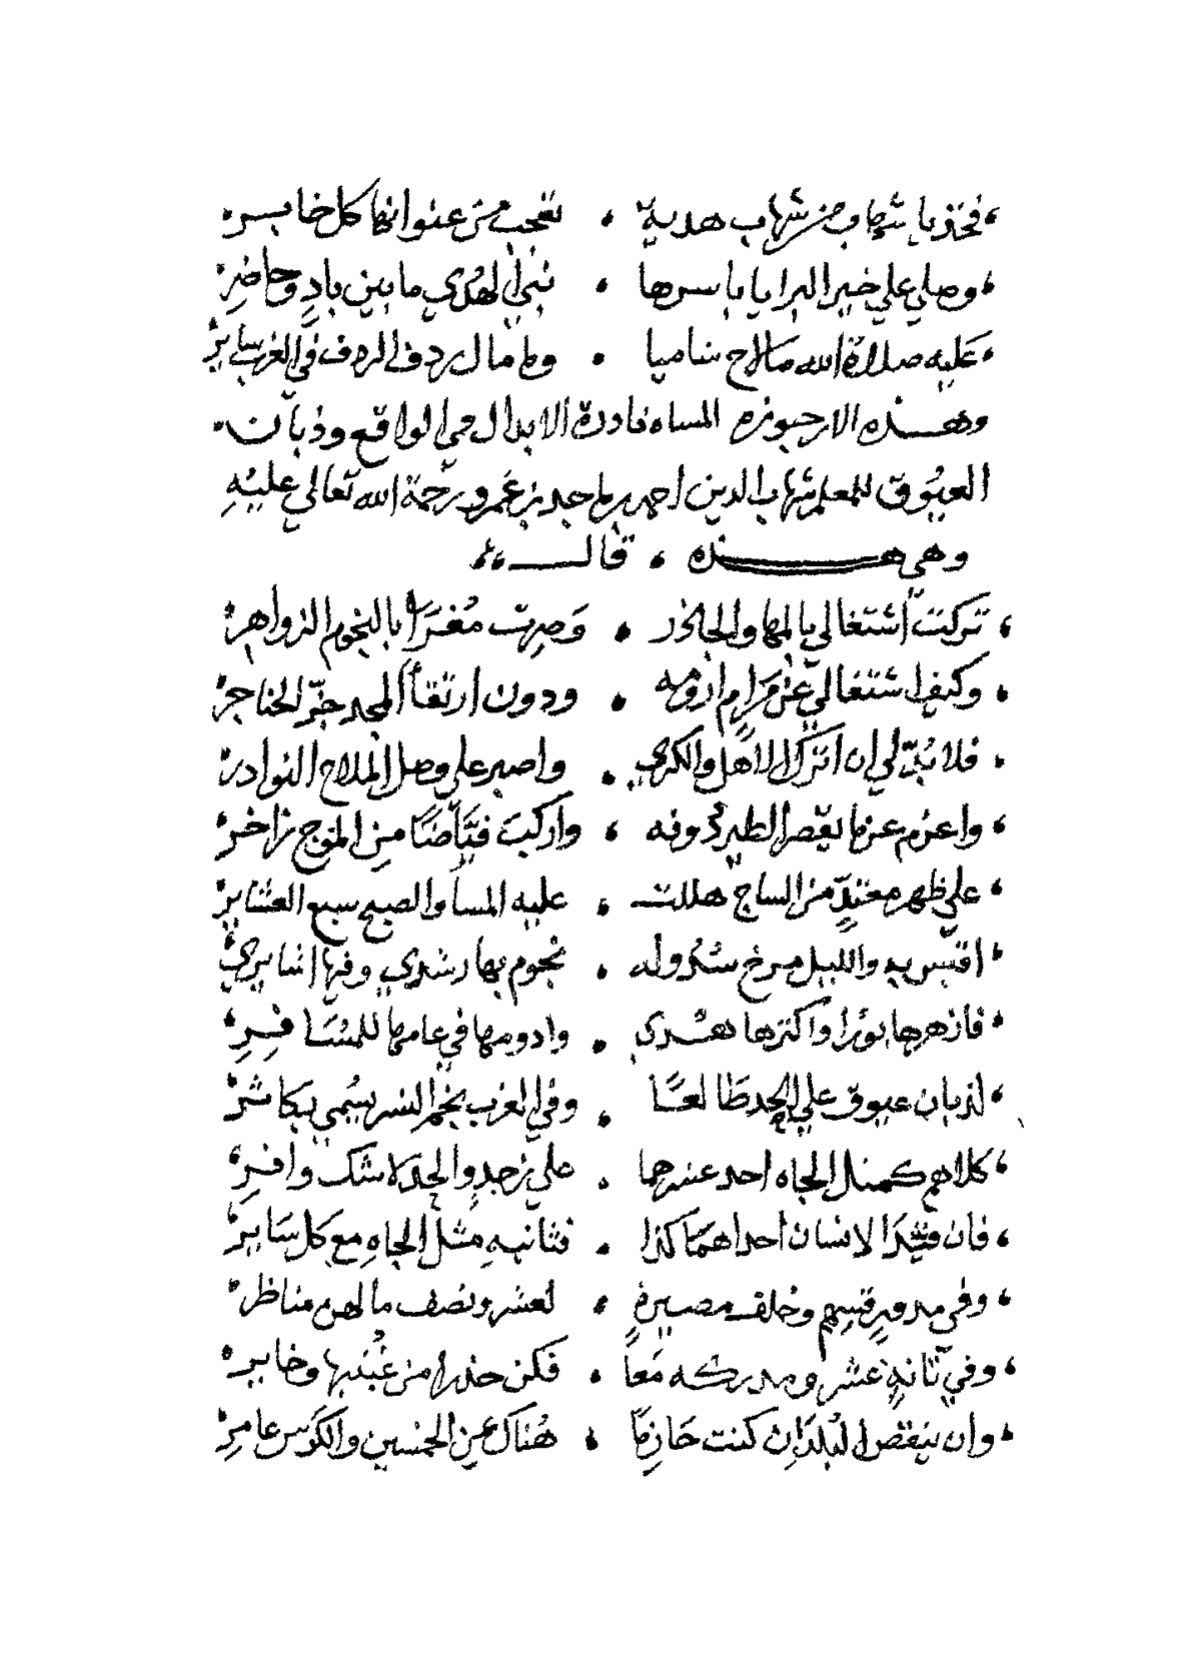 فخذ يا شهاب من شهاب هدية ، تعجب من عنوانها كل خابر
وصلي علي خير البرايا باسرها ، نبي الهدي ما بين بادٍ وحاضرِ
عليه صلاة الله ما لاح ساميا ، وما مال ردف الردف في الغرب ساير
وهذه الارجوزه المسماه نادرة الابدال في الواقع وذبان
العيوق للمعلم شهاب الدين احمد بن ماجد بن عمرو رحمة الله تعالي عليهِ
وهي هذه ، قال
تركت اشتغالي بالمها والجاذر ، وَصِرت مُغرَا بالنجوم الزواهر
وكيف اشتغالي عن مَرَامٍ ارومه ، ودون ارتقاأ المجد جزّ الحناجر
فلا بُدّ لي ان اترك الاهل والكري ، واصبر علي وصل الملاح النوادر
واعزم عزما يقصر الطير دونه ، واركبَ فيّاضًا من الموج زاخر
علي ظهر من الساج هللت ، عليه المسا والصبح سبع العشاير
اقتبس به والليل مرخ سدوله ، نجوم بها رشدي وفيها اشايري
فازهرها نورا واكثرها هدي ، وادومها في عامها للمسَافِرِ
لذبان عيوق علي الجد طالعًا ، وفي الغرب نجم النسر يسُمي بكاشر
كلاهم كمثل الجاه احد عشرهما ، علي والجد لا شك وافِرِ
فان قيّدَ الانسان احداهما كذا ، فثانيهِ مثل الجاهِ مع كل سَاير
وفي مدورٍ قسهم وخلف مصيرةٍ ، لعشر ونصف ما لهن مناظر
وفي ثانةٍ عشر ومدركه مَعا ، فكن حذرا من غُبّبها وخابر
وان ينقص البلدَانِ كنت حَازِمًا ، هُناك عن الخمسين والكوس عامرِ